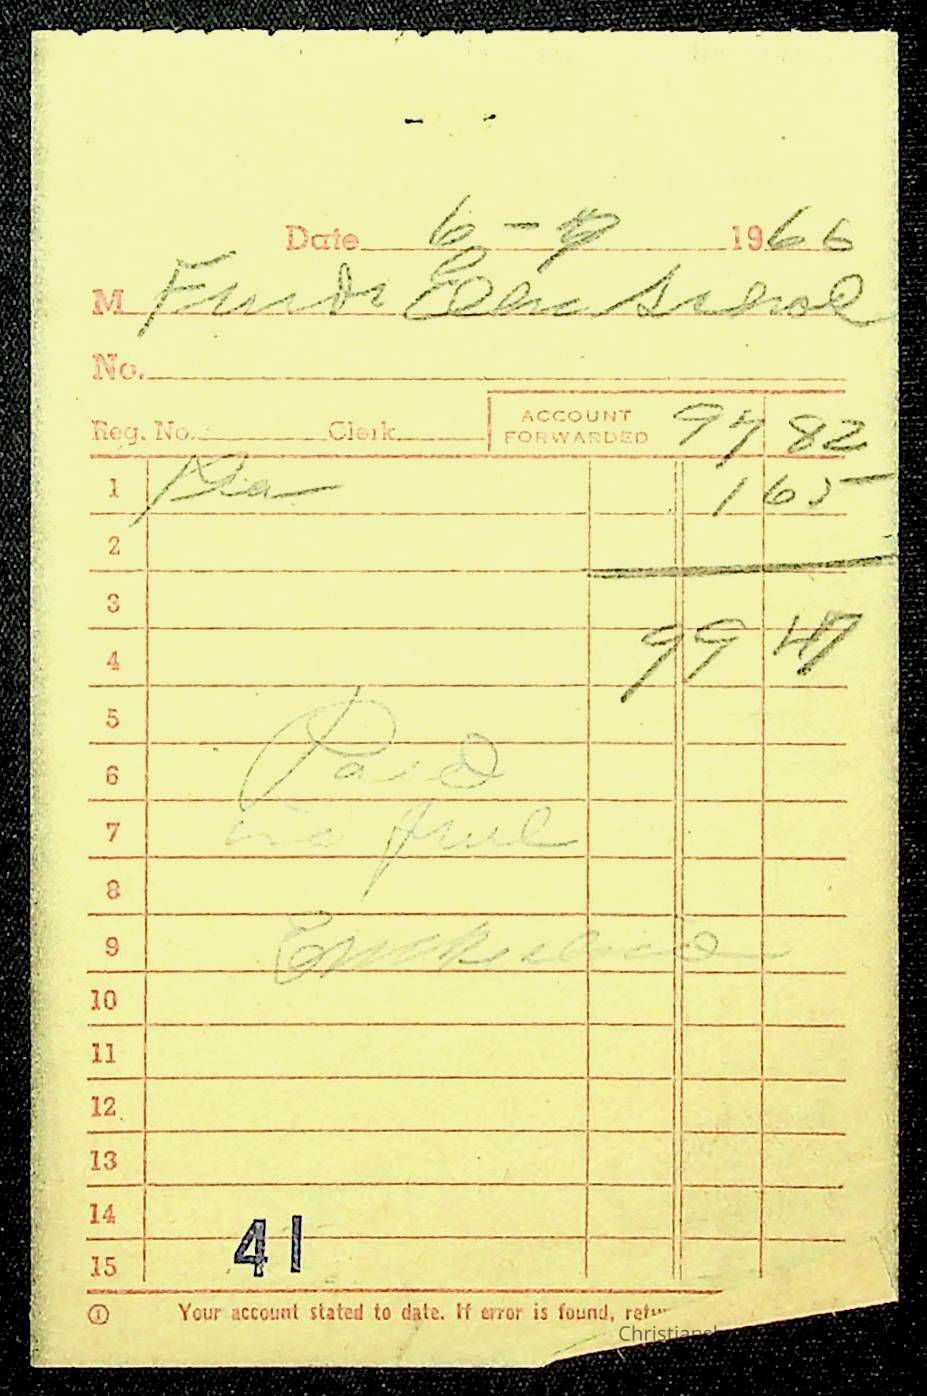 Date 6-9 1966
M Friends Elem School
No.
Reg. No. Clerk ACCOUNT FORWARDED 97 82
1 1 65
2
3
4 99 47
5
6 Paid
7 in full
8
9
10
11
12
13
14
15
41
Your account stated to date. If error is found, retu
Christiansb